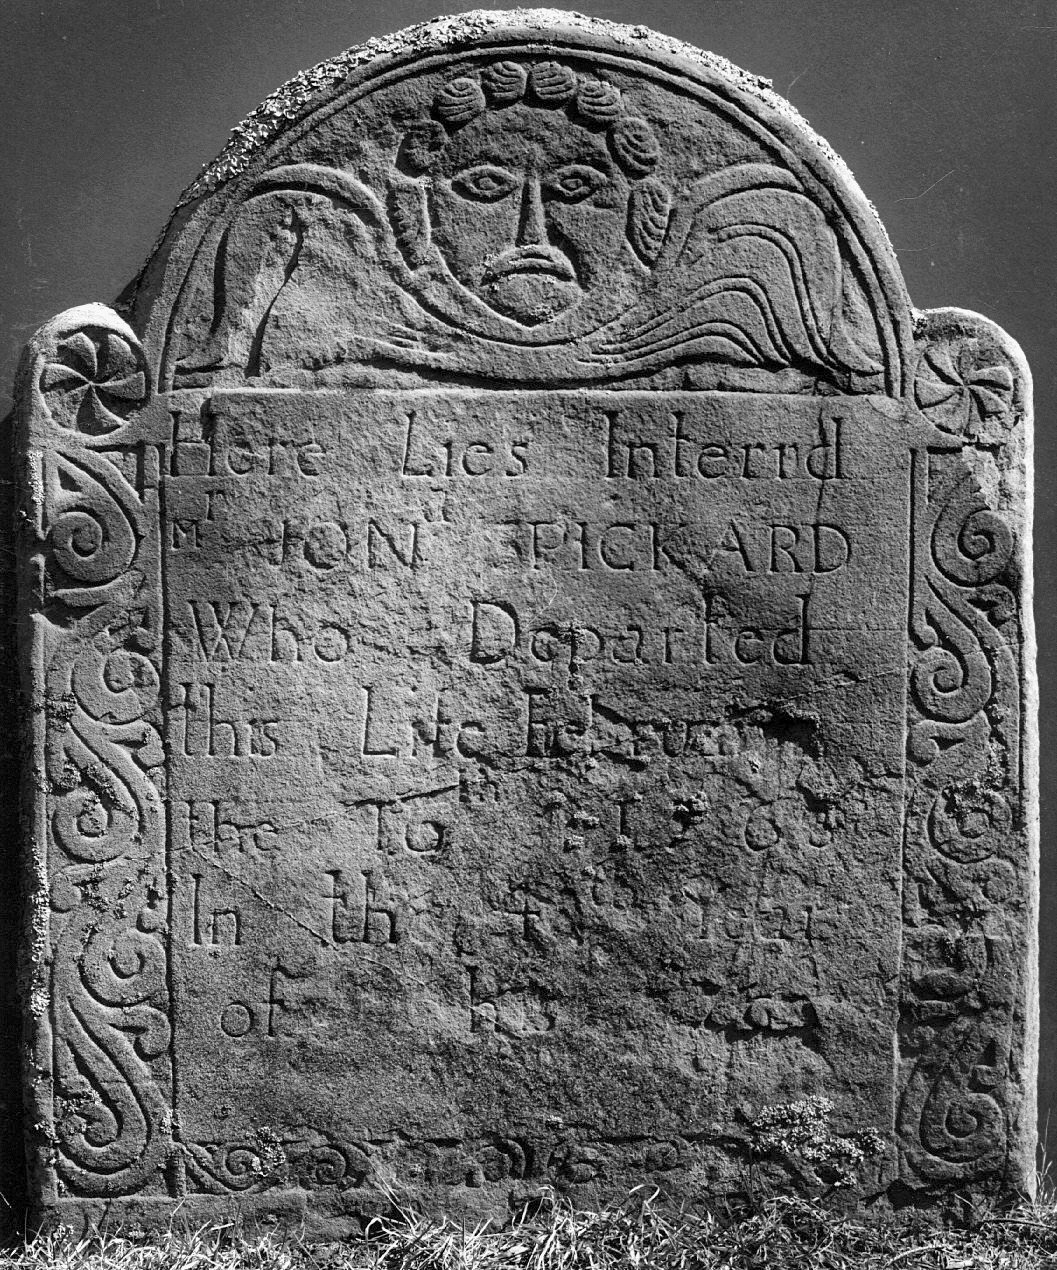 Here Lies Interrd
Mr IOHN PICKARD
Who Departed
this Life February
the 10
In the Year
of his Age